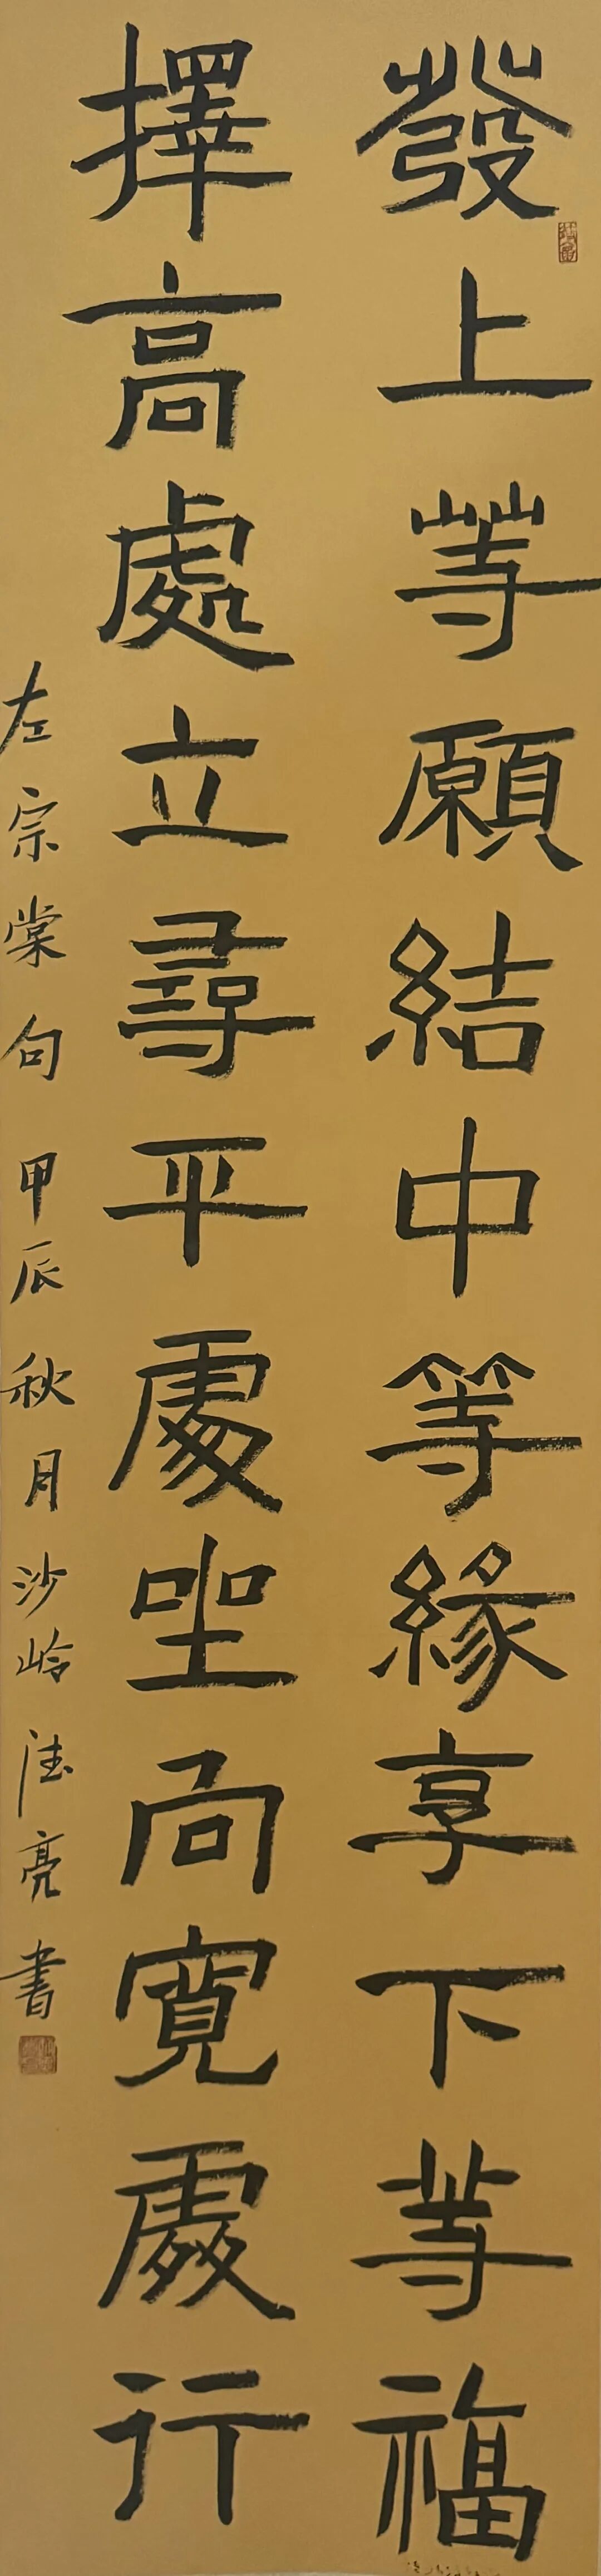 發上等願結中等緣享下等福
擇高處立尋平處坐向寬處行
左宗棠句 甲辰秋月沙岭法亮書